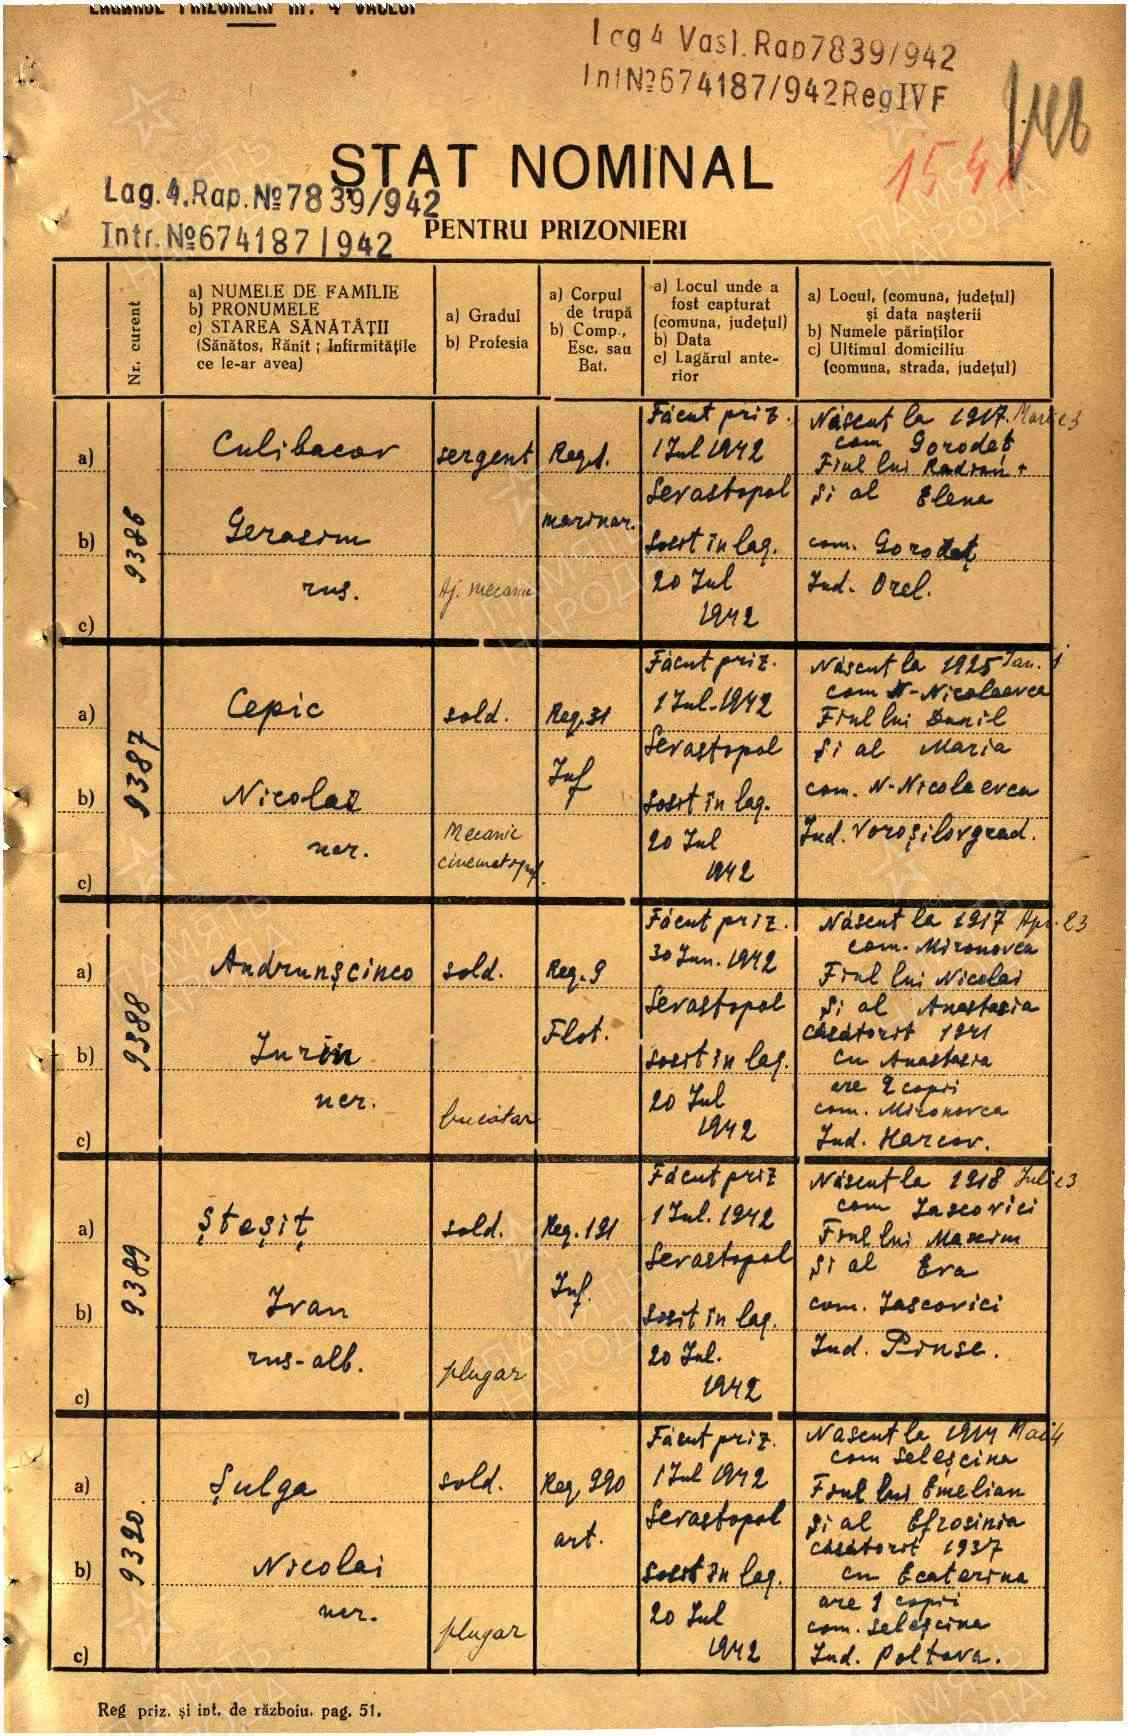 LAGĂRUL PRIZONIERI Nr. 4 VASLUI
Lag 4 Vasl. Rap 7839/942
Int № 674187/942 Reg IV F
154
STAT NOMINAL
Lag. 4. Rap. № 7839/942
PENTRU PRIZONIERI
Intr. № 674187/942
Nr. curent
a) NUMELE DE FAMILIE
b) PRONUMELE
c) STAREA SĂNĂTĂȚII
(Sănătos, Rănit ; Infirmitățile
ce le-ar avea)
a) Gradul
b) Profesia
a) Corpul
de trupă
b) Comp.,
Esc. sau
Bat.
a) Locul unde a
fost capturat
(comuna, județul)
b) Data
c) Lagărul ante-
rior
a) Locul, (comuna, județul)
și data nașterii
b) Numele părinților
c) Ultimul domiciliu
(comuna, strada, județul)
9386
a)
b)
c)
Culibacov
Gerasim
rus.
sergent
Aj. mecanic
Reg 1.
marinar.
Făcut priz.
1 Iul 1942
Sevastopol
Sosit în lag.
20 Iul
1942
Născut la 1917. Martie 3
com Gorodeț
Fiul lui Radion +
Și al Elena
com. Gorodeț
Jud. Orel.
9387
a)
b)
c)
Cepic
Nicolai
ucr.
sold.
Mecanic
cinematogr.
Reg. 31
Inf
Făcut priz.
1 Iul. 1942
Sevastopol
Sosit în lag.
20 Iul
1942
Născut la 1925 Ian. 1
com N-Nicolaevca
Fiul lui Danil
Și al Maria
com. N-Nicolaevca
Jud. Voroșilovgrad.
9388
a)
b)
c)
Andrunșcinco
Iurin
ucr.
sold.
bucătar
Reg. 9
Flot.
Făcut priz.
30 Iun. 1942
Sevastopol
Sosit în lag.
20 Iul
1942
Născut la 1917 Apr. 23
com. Mironovca
Fiul lui Nicolai
Și al Anastasia
căsătorit 1941
cu Anastasia
are 2 copii
com. Mironovca
Jud. Harcov.
9389
a)
b)
c)
Șteșiț
Ivan
rus-alb.
sold.
plugar
Reg. 191
Inf.
Făcut priz
1 Iul. 1942
Sevastopol
Sosit în lag.
20 Iul.
1942
Născut la 1918 Iulie 3
com Iascovici
Fiul lui Maxim
Și al Eva
com. Iascovici
Jud. Pinsc.
9390.
a)
b)
c)
Șulga
Nicolai
ucr.
sold.
plugar
Reg 990
art.
Făcut priz.
1 Iul 1942
Sevastopol
Sosit în lag.
20 Iul
1942
Născut la 1914 Mai 4
com Seleșcina
Fiul lui Emelian
Și al Efrosinia
căsătorit 1937
cu Ecaterina
are 1 copii
com. Seleșcina
Jud. Poltava.
Reg priz. și int. de războiu. pag. 51.
ПАМЯТЬ
НАРОДА